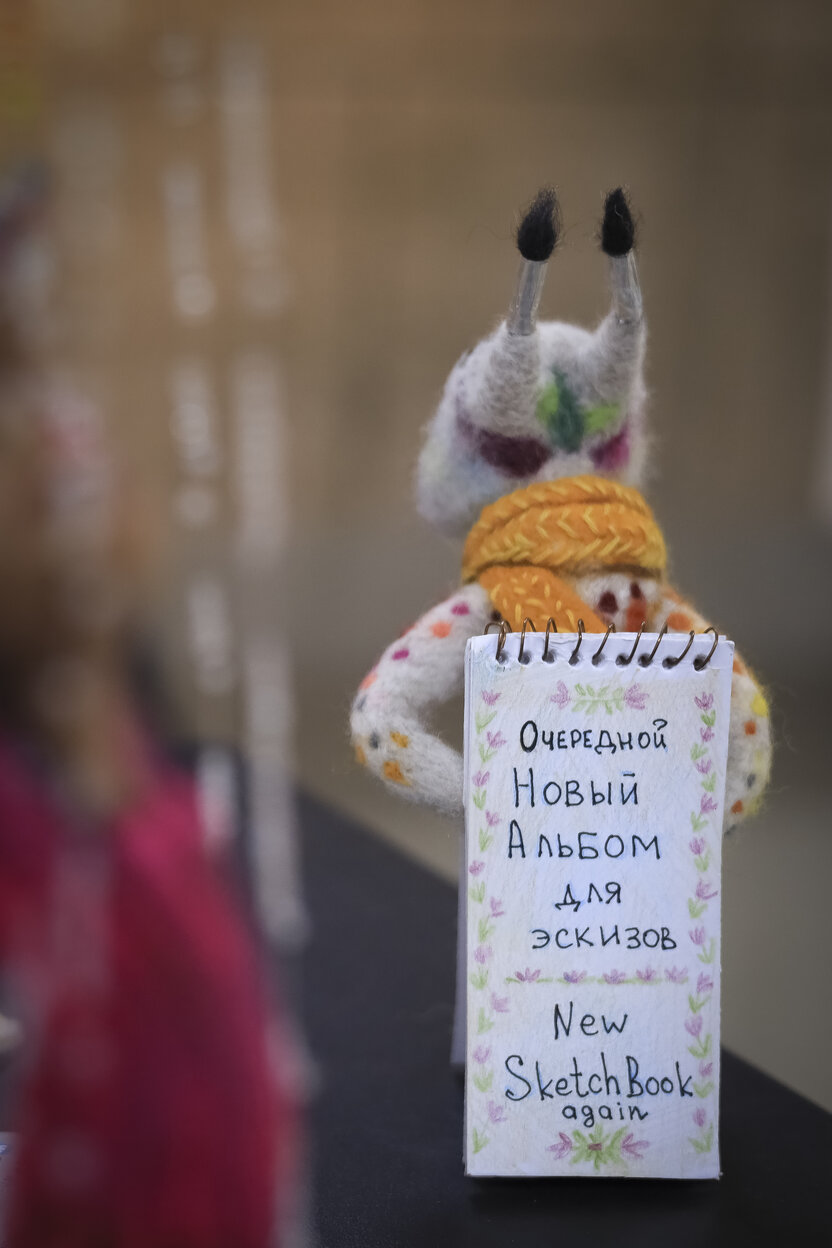 Очередной
Новый
Альбом
для
эскизов
New
SketchBook
again